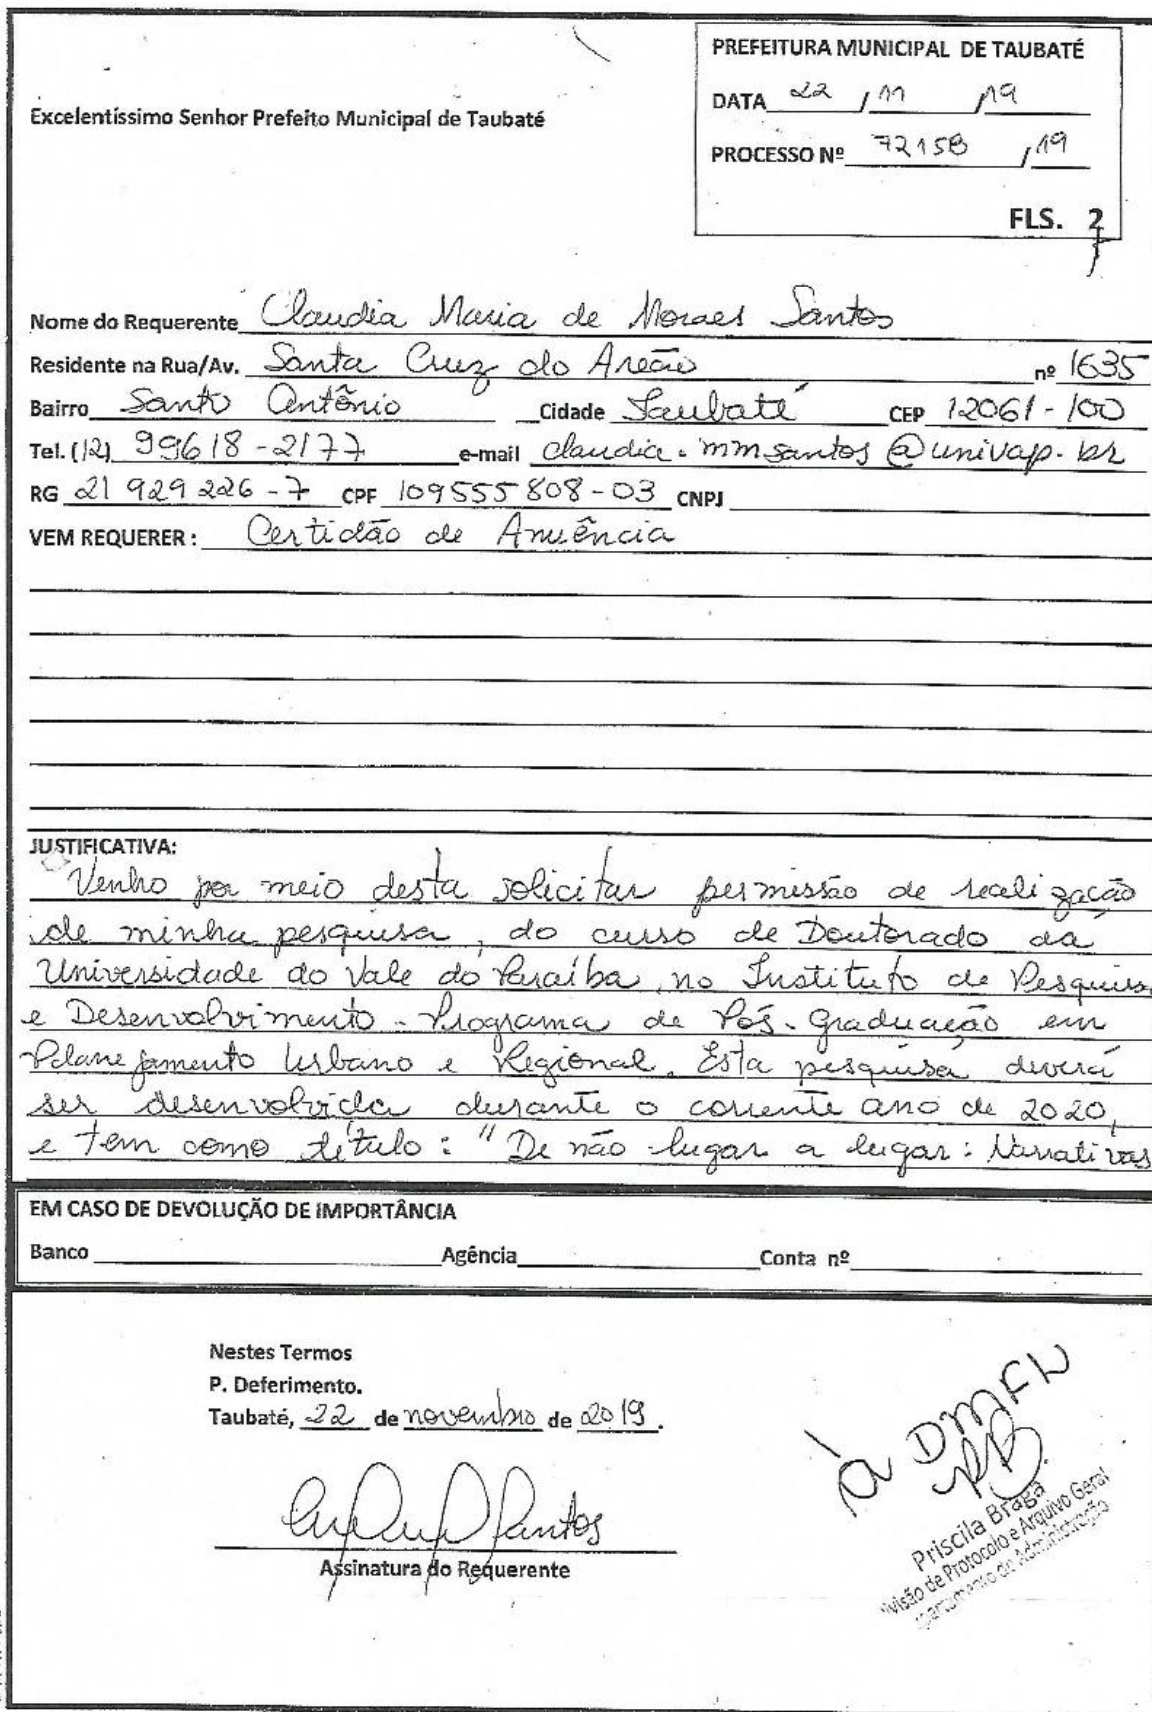 PREFEITURA MUNICIPAL DE TAUBATÉ
DATA 22 / 11 / 19
Excelentíssimo Senhor Prefeito Municipal de Taubaté
PROCESSO Nº 72158 / 19
FLS. 2
Nome do Requerente Claudia Maria de Moraes Santos
Residente na Rua/Av. Santa Cruz do Areão nº 1635
Bairro Santo Antônio Cidade Taubaté CEP 12061-100
Tel. (12) 99618-2177 e-mail claudia.mmsantos@univap.br
RG 21 929 226-7 CPF 109555808-03 CNPJ
VEM REQUERER: Certidão de Anuência
JUSTIFICATIVA:
Venho por meio desta solicitar permissão de realização
de minha pesquisa, do curso de Doutorado da
Universidade do Vale do Paraíba, no Instituto de Pesquisa
e Desenvolvimento - Programa de Pós-Graduação em
Planejamento Urbano e Regional. Esta pesquisa deverá
ser desenvolvida durante o corrente ano de 2020,
e tem como título: "De não lugar a lugar: Narrativas
EM CASO DE DEVOLUÇÃO DE IMPORTÂNCIA
Banco Agência Conta nº
Nestes Termos
P. Deferimento.
Taubaté, 22 de novembro de 2019.
Santos
Assinatura do Requerente
À
Priscila Braga
Divisão de Protocolo e Arquivo Geral
Departamento de Administração